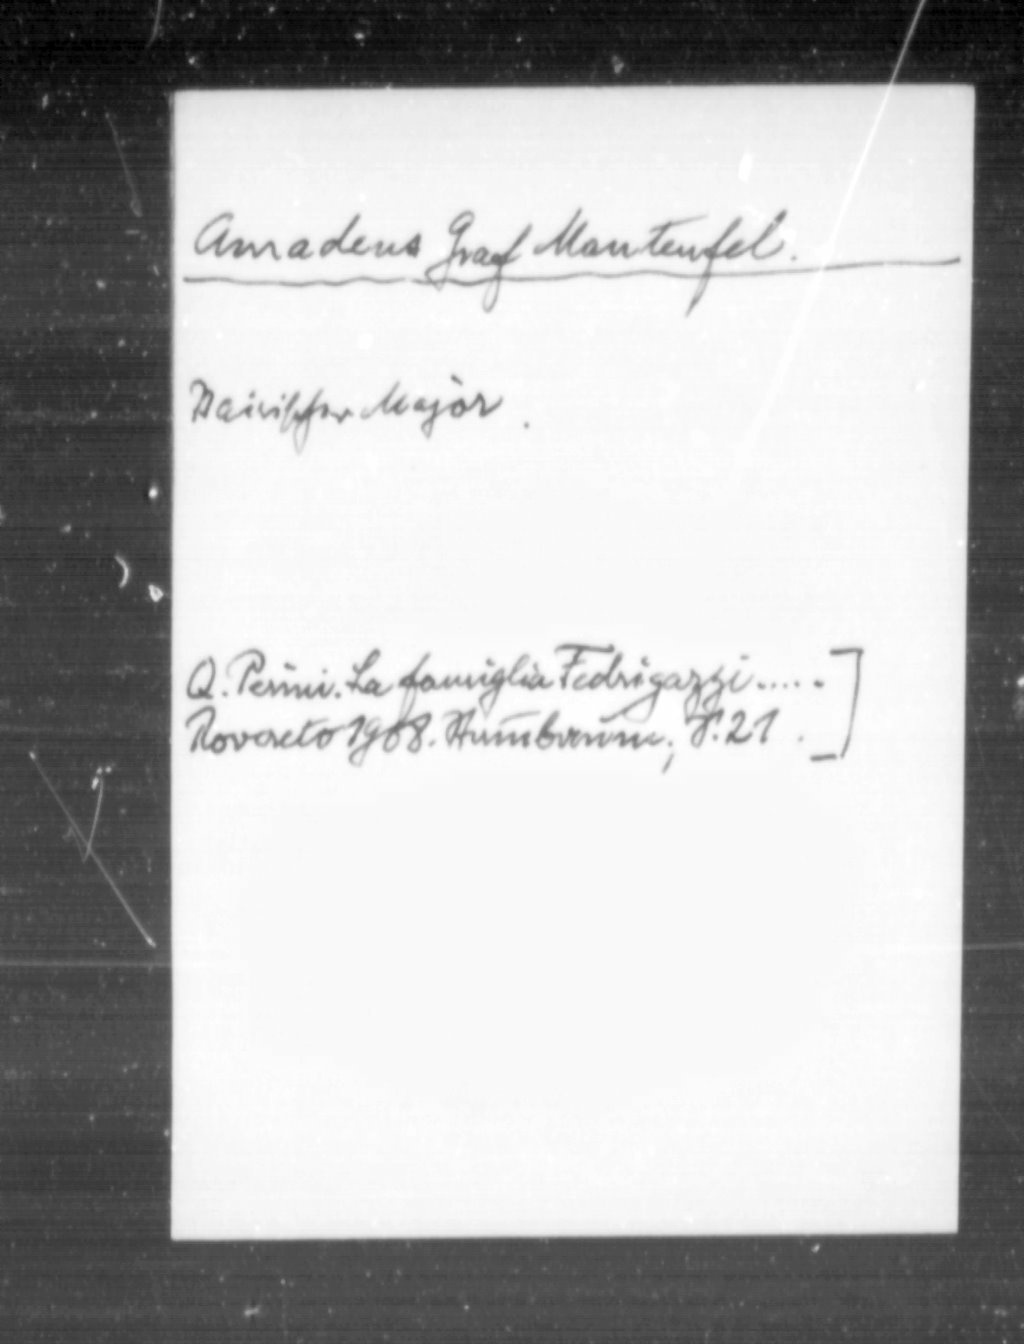 Amadeus Graf Manteufel.
Bairischer Major.
Q. Perini. La famiglia Fedrigazzi.....]
Rovereto 1908. Stammbaum; S. 21.